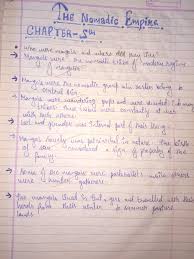 The Nomadic Empire
CHAPTER-5th
→ Who were mongols and where did they live?
→ Mongols were the nomadic tribes of modern regions
of mongolia
→ Mongols is the nomadic group who earlier belong to
central Asia
→ Mongols were wandering people and were divided into many
tribes. These tribes were constantly at war
with each others.
→ Loot and plunder was internal part of their living
→ Mongol society was patriarchal in nature. The birth
of a son considered a sign of prosperity of the
family
→ Some of the mongols were pastoralist while others
were hunter gatherers
→ The mongols lived in and travelled with their
herds from their winter to summer pasture
lands